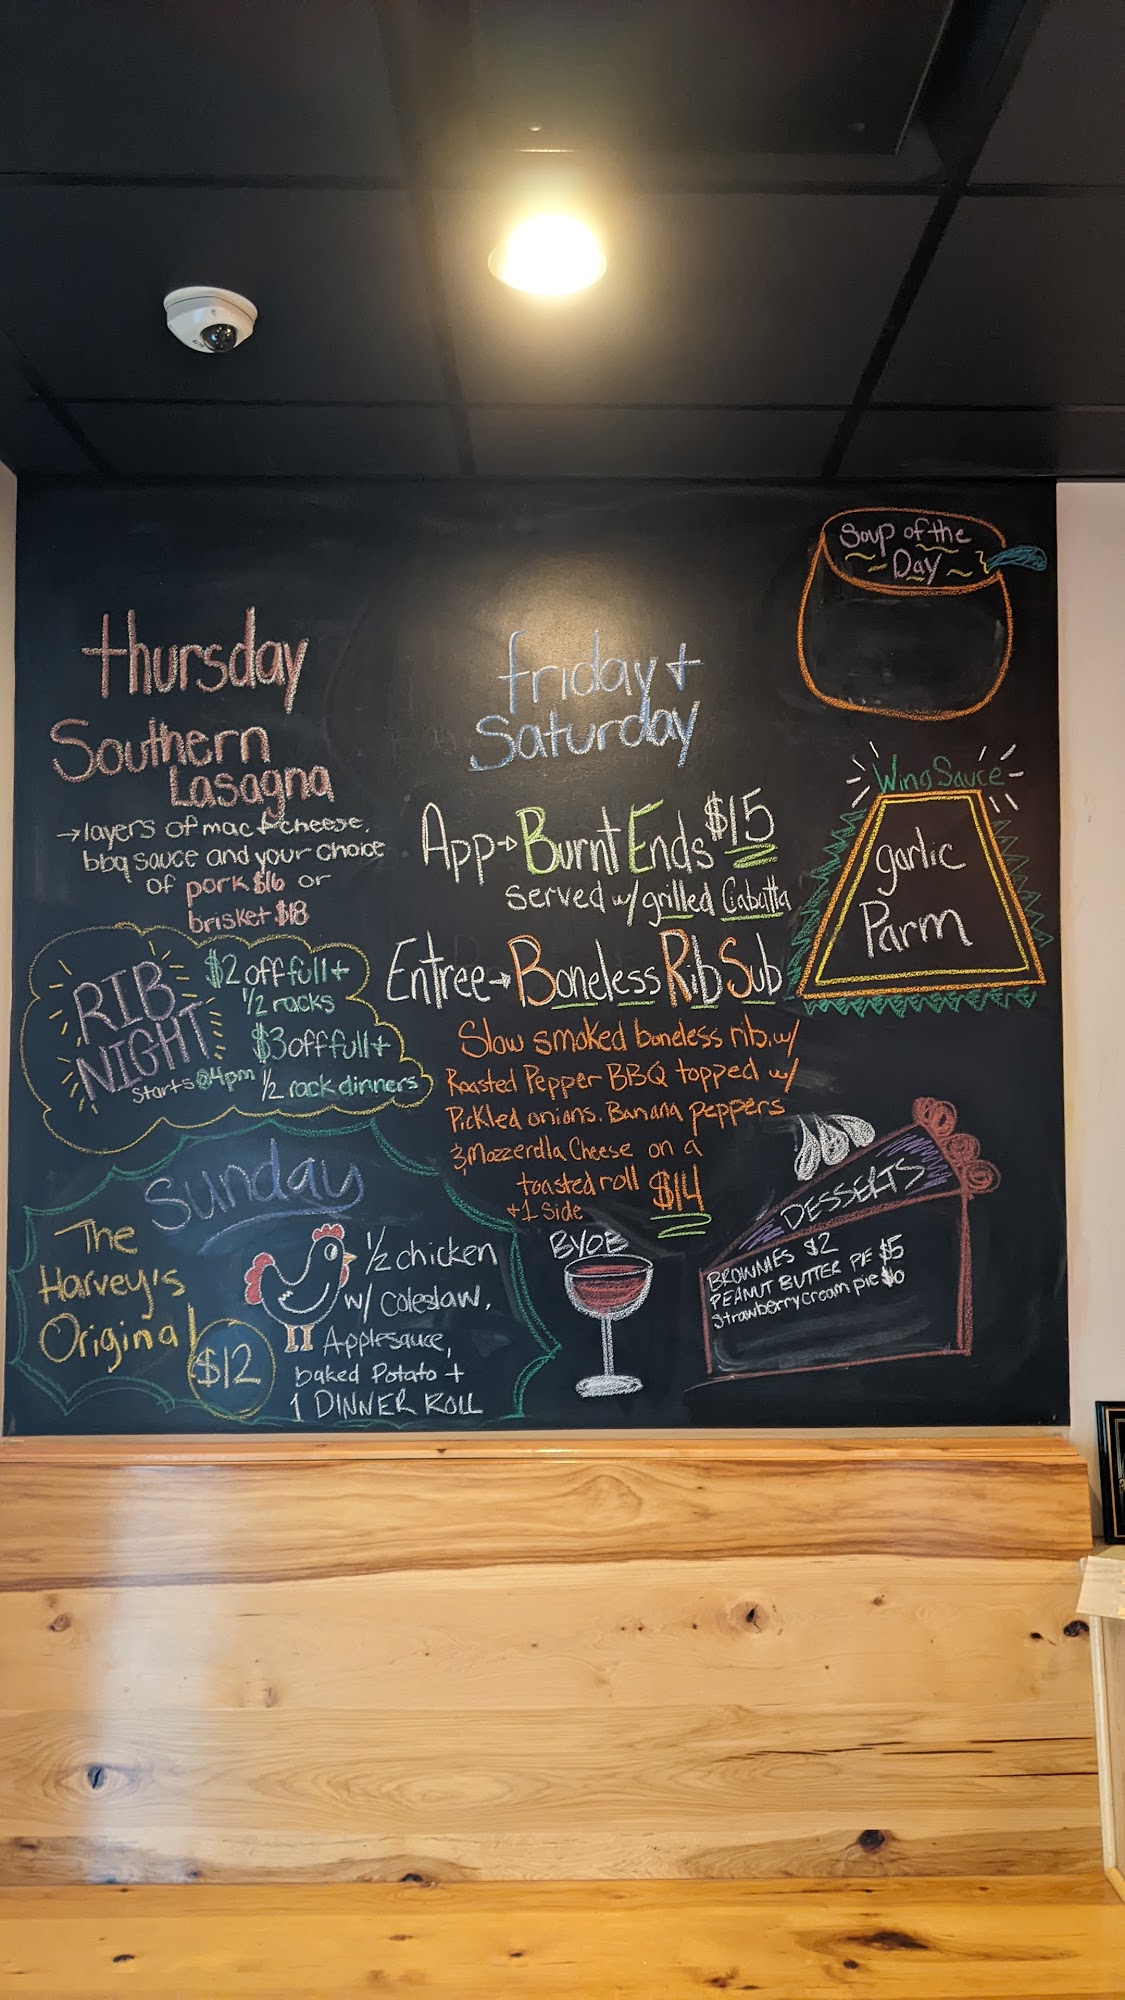 thursday
Southern
Lasagna
→layers of mac & cheese,
bbq sauce and your choice
of pork $16 or
brisket $18
RIB
NIGHT
Starts @ 4pm
$2 off full +
1/2 racks
$3 off full +
1/2 rack dinners
Sunday
The
Harvey's
Original
$12
1/2 chicken
w/ Coleslaw,
Applesauce,
baked Potato +
1 DINNER ROLL
friday +
Saturday
App→Burnt Ends $15
served w/ grilled Ciabatta
Entree→Boneless Rib Sub
Slow smoked boneless rib w/
Roasted Pepper BBQ topped w/
Pickled onions, Banana peppers
& Mozzerella Cheese on a
toasted roll $14
+ 1 side
BYOB
Soup of the
Day
Wing Sauce
garlic
Parm
DESSERTS
BROWNIES $2
PEANUT BUTTER PIE $5
Strawberry cream pie